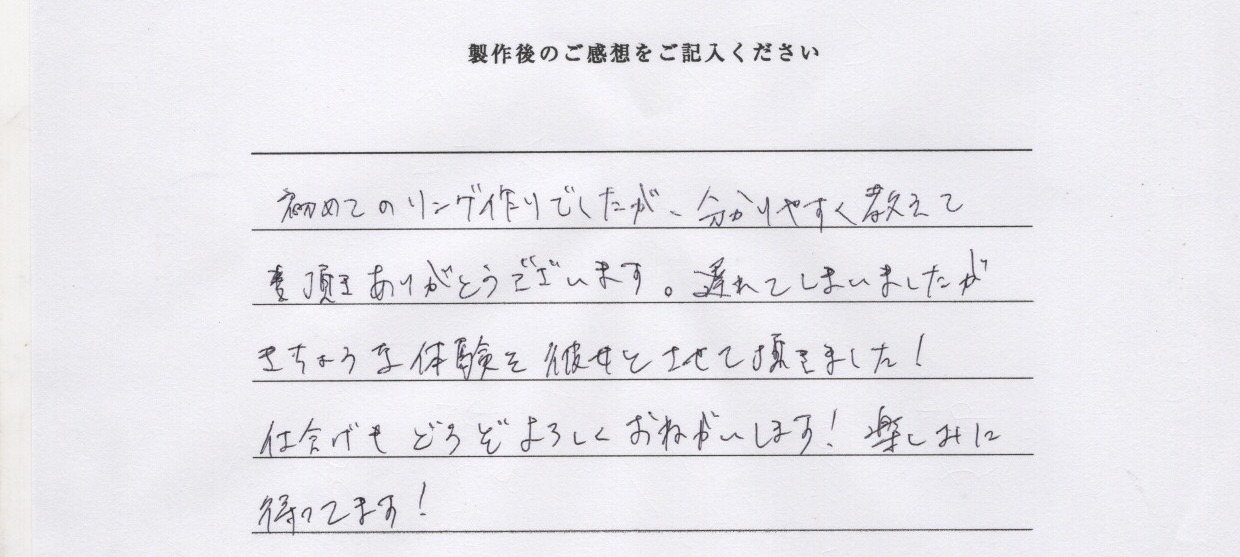 製作後のご感想をご記入ください
初めてのリング作りでしたが、分かりやすく教えて
頂きありがとうございます。遅れてしまいましたが
きちょうな体験を彼女とさせて頂きました!
仕合げもどうぞよろしくおねがいします!楽しみに
待ってます!